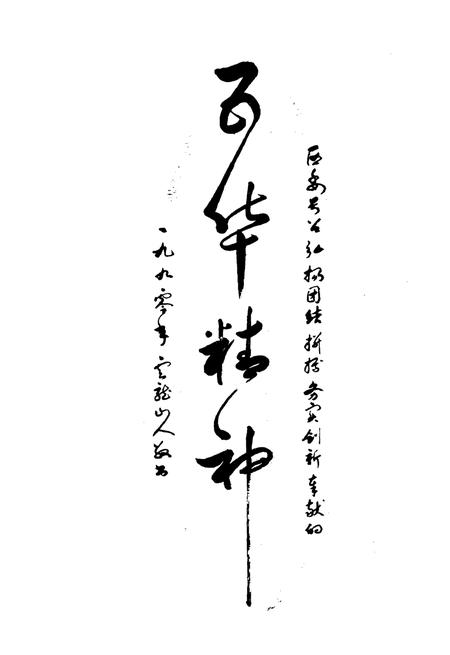 弘扬团结拼搏务实创新奉献的
百华精神
一九九零年 龙山人敬书